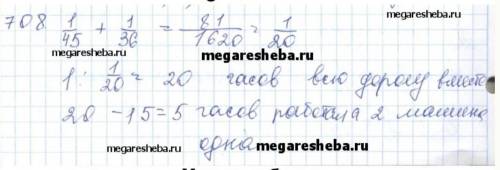 708 1/45 + 1/36 = 81/1620 = 1/20
megaresheba.ru
1 : 1/20 = 20 часов всю дорогу вместе
20 - 15 = 5 часов работала 2 машина
одна
megaresheba.ru megaresheba.ru megaresheba.ru